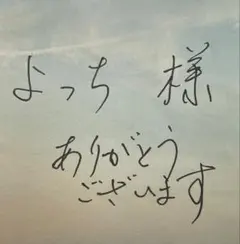 よっち 様
ありがとう
ございます